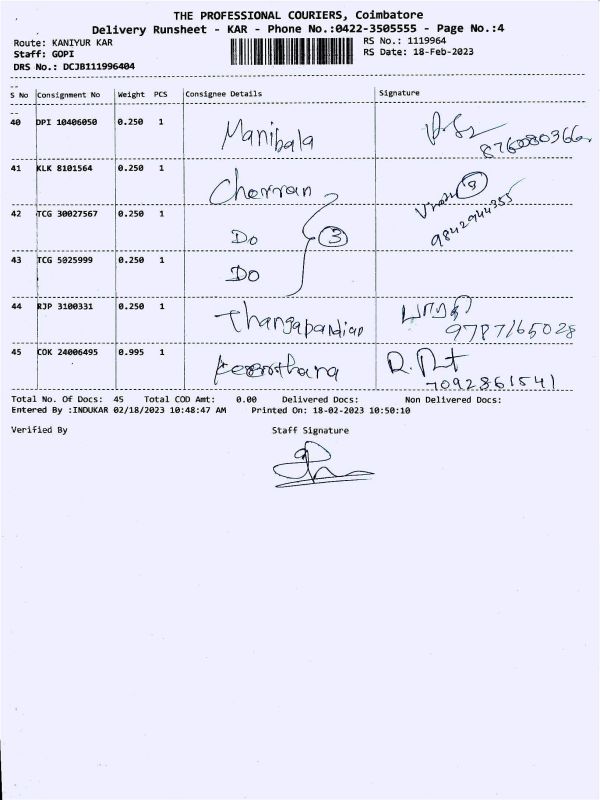 THE PROFESSIONAL COURIERS, Coimbatore
Delivery Runsheet - KAR - Phone No.:0422-3505555 - Page No.:4
Route: KANIYUR KAR
RS No.: 1119964
Staff: GOPI
RS Date: 18-Feb-2023
DRS No.: DCJB111996404
S No Consignment No Weight PCS Consignee Details Signature
40 DPI 10406050 0.250 1 Manibala
41 KLK 8101564 0.250 1
42 TCG 30027567 0.250 1 Do 3
9842944355
43 TCG 5025999 0.250 1 Do
44 RJP 3100331 0.250 1 Thangapandian
9787165028
45 COK 24006495 0.995 1
7092861541
Total No. Of Docs: 45 Total COD Amt: 0.00 Delivered Docs: Non Delivered Docs:
Entered By :INDUKAR 02/18/2023 10:48:47 AM Printed On: 18-02-2023 10:50:10
Verified By Staff Signature